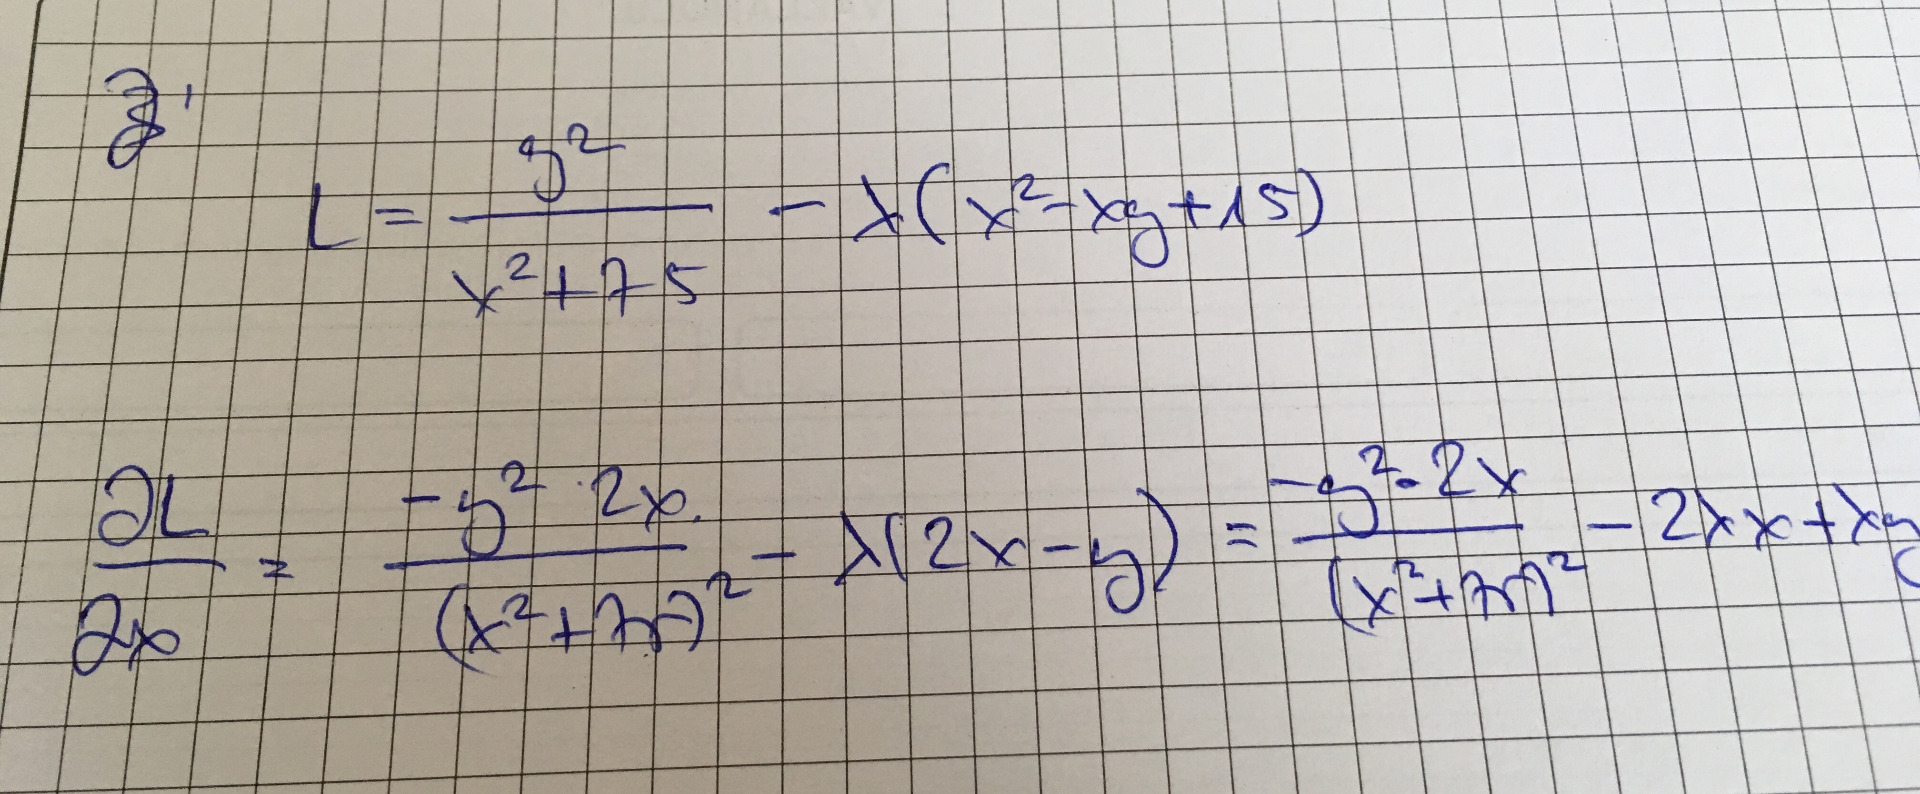 L = y² / (x² + 75) - λ(x² - xy + 15)
∂L/∂x = -y² · 2x / (x² + 75)² - λ(2x - y) = -y² · 2x / (x² + 75)² - 2λx + λy